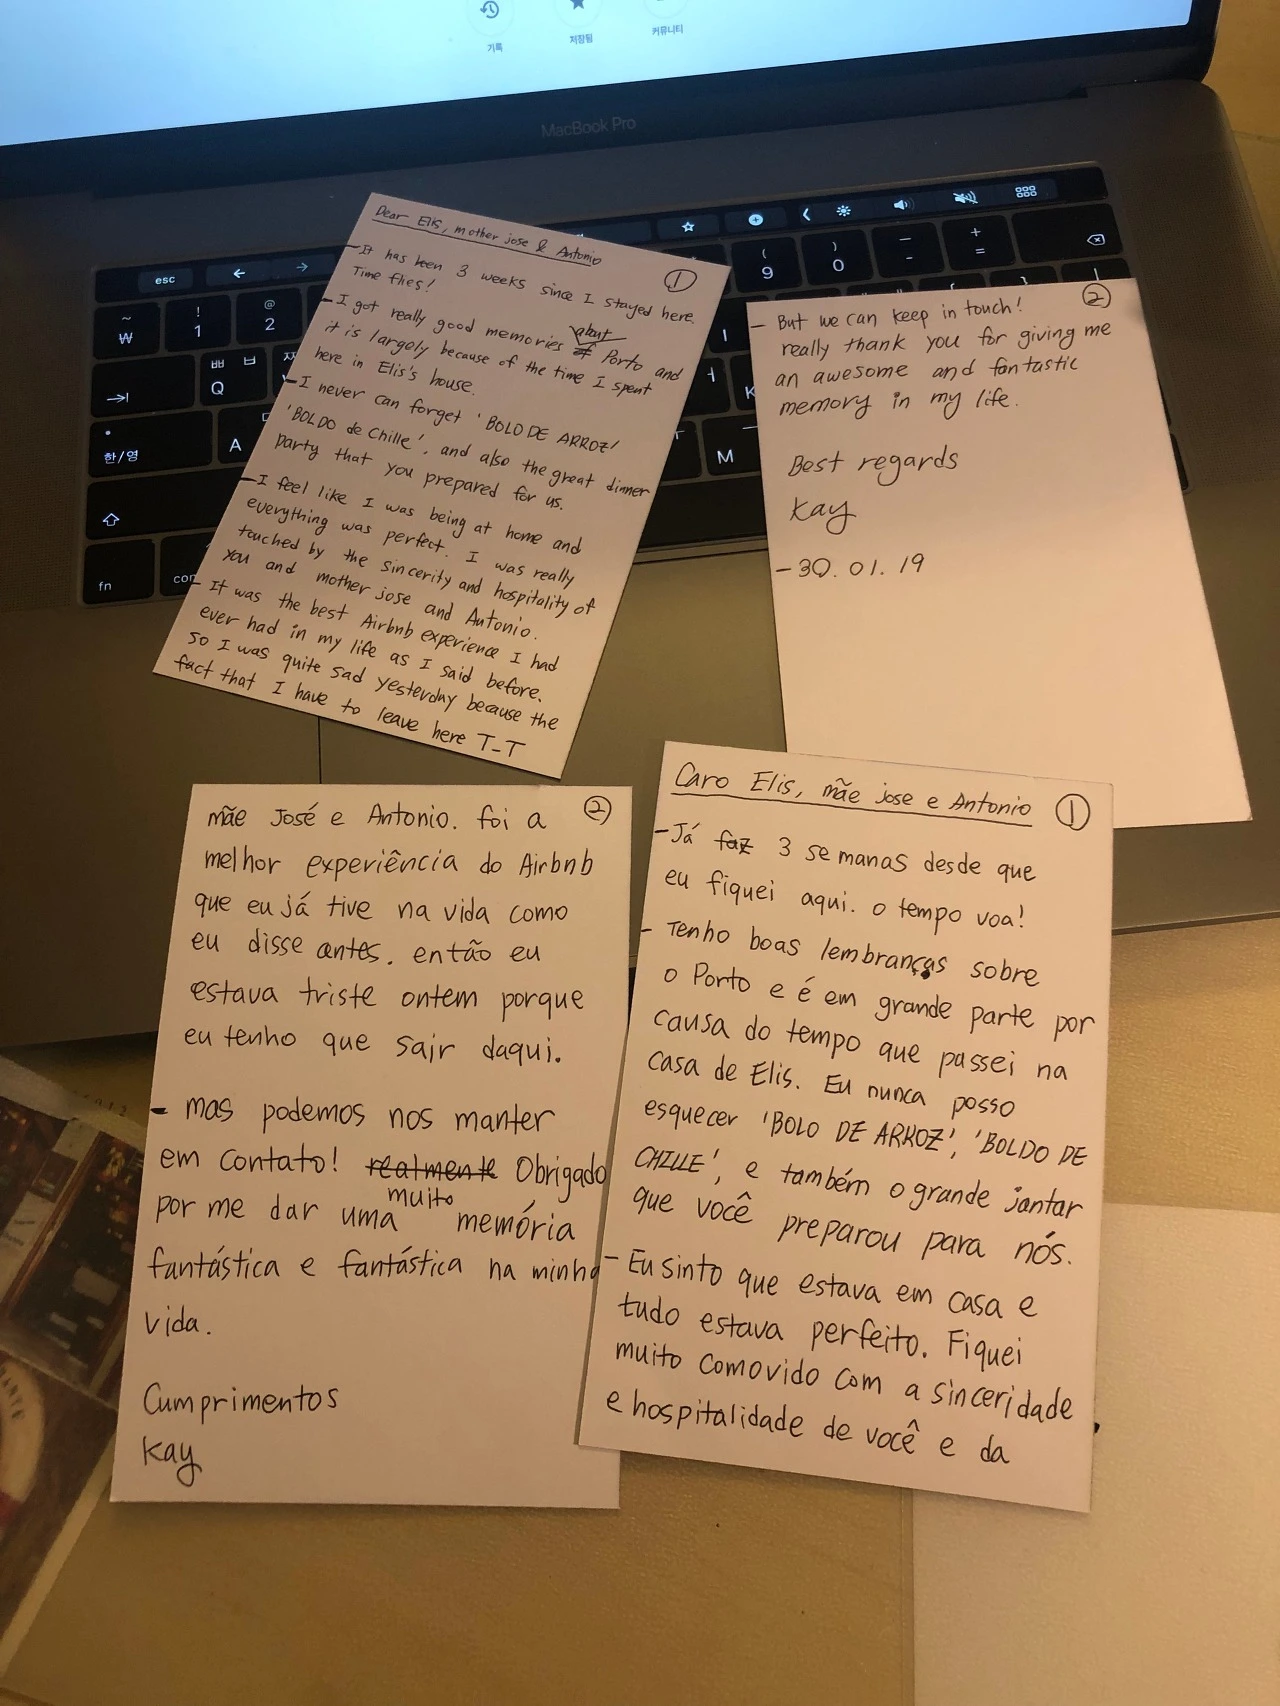 기록
저장됨
커뮤니티
MacBook Pro
esc
fn
한/영
Dear Elis, mother jose & Antonio
①
-It has been 3 weeks since I stayed here.
Time flies!
-I got really good memories of about Porto and
it is largely because of the time I spent
here in Elis's house.
-I never can forget 'BOLO DE ARROZ'
'BOLDO de Chille', and also the great dinner
party that you prepared for us.
-I feel like I was being at home and
everything was perfect. I was really
touched by the sincerity and hospitality of
you and mother jose and Antonio.
- It was the best Airbnb experience I had
ever had in my life as I said before.
so I was quite sad yesterday because the
fact that I have to leave here T_T
②
- But we can keep in touch!
really thank you for giving me
an awesome and fantastic
memory in my life.
Best regards
Kay
- 30. 01. 19
Caro Elis, mãe jose e Antonio ①
-Já faz 3 semanas desde que
eu fiquei aqui. o tempo voa!
- Tenho boas lembranças sobre
o Porto e é em grande parte por
causa do tempo que passei na
casa de Elis. Eu nunca posso
esquecer 'BOLO DE ARROZ', 'BOLDO DE
CHILLE', e também o grande jantar
que você preparou para nós.
- Eu sinto que estava em casa e
tudo estava perfeito. Fiquei
muito comovido com a sinceridade
e hospitalidade de você e da
mãe José e Antonio. foi a ②
melhor experiência do Airbnb
que eu já tive na vida como
eu disse antes. então eu
estava triste ontem porque
eu tenho que sair daqui.
- mas podemos nos manter
em contato! realmente Obrigado
por me dar uma muito memória
fantástica e fantástica na minha
vida.
Cumprimentos
Kay